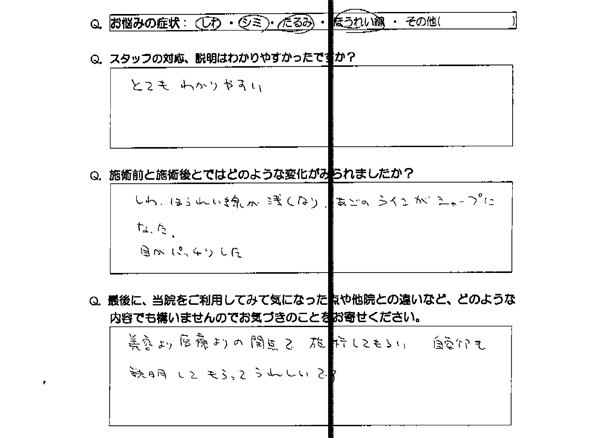 Q. お悩みの症状：しわ・シミ・たるみ・ほうれい線・その他(　　　)
Q. スタッフの対応、説明はわかりやすかったですか？
とても わかりやすい
Q. 施術前と施術後とではどのような変化がみられましたか？
しわ、ほうれい線が浅くなり、あごのラインがシャープに
なった。
目がパッチリした
Q. 最後に、当院をご利用してみて気になった点や他院との違いなど、どのような
内容でも構いませんのでお気づきのことをお寄せください。
美容より医療よりの関点で 施術してもらい
説明してもらってうれしいです